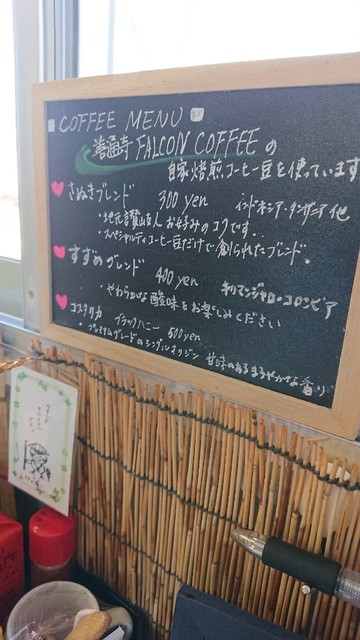 COFFEE MENU
善通寺 FALCON COFFEE の
自家焙煎コーヒー豆を使っています
さぬきブレンド 300 yen インドネシア・タンザニア 他
・地元讃岐人お好みのコクです。
・スペシャルティコーヒー豆だけで創られたブレンド。
すずめブレンド 400 yen キリマンジャロ・コロンビア
・やわらかな酸味をお楽しみください
コスタリカ ブラックハニー 500yen
・プレミアムグレードのシングルオリジン 甘味のあるまろやかな香り